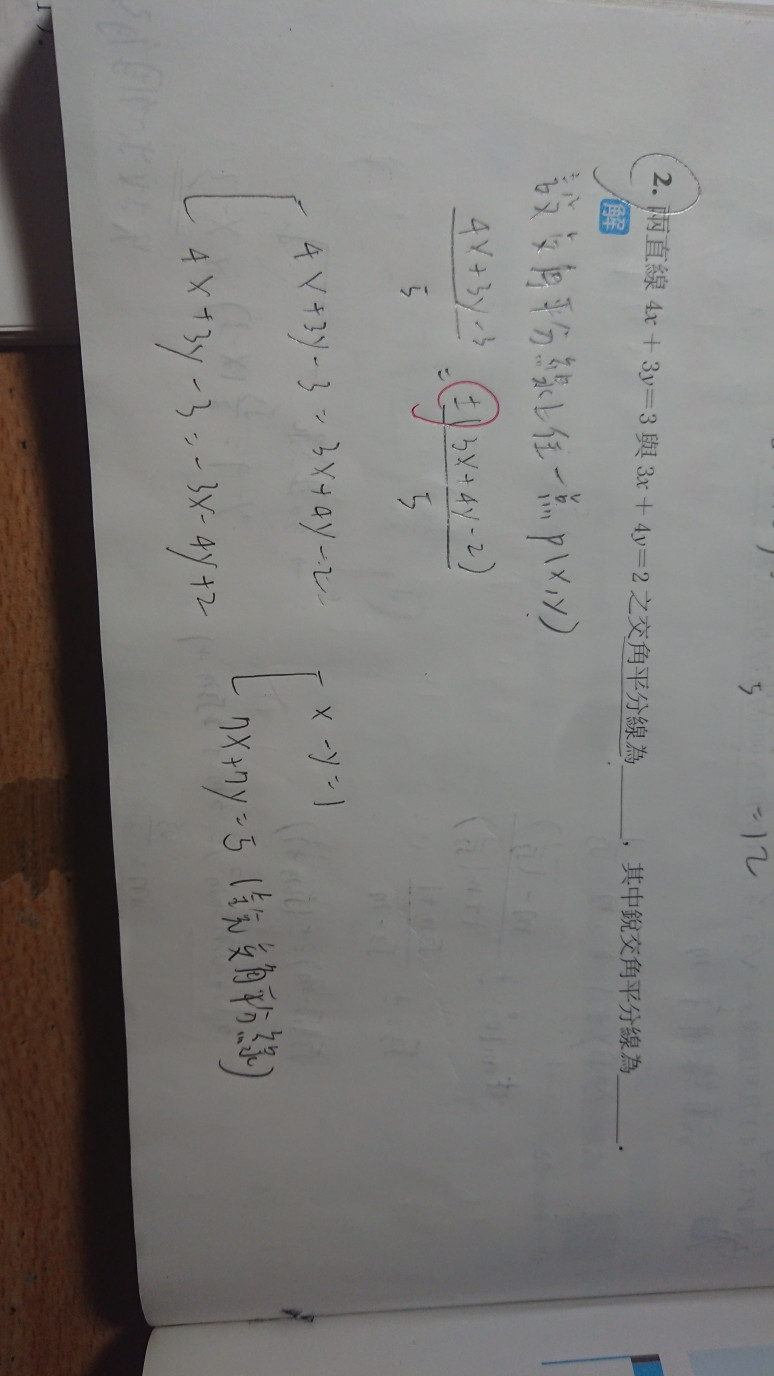 = 12
5
2. 兩直線 4x + 3y = 3 與 3x + 4y = 2 之交角平分線為______,其中銳交角平分線為______.
解
設交角平分線上任一點 P(x,y)
4x+3y-3 / 5 = ±(3x+4y-2) / 5
4x+3y-3 = 3x+4y-2
x-y=1
4x+3y-3 = -3x-4y+2
7x+7y=5 (銳交角平分線)